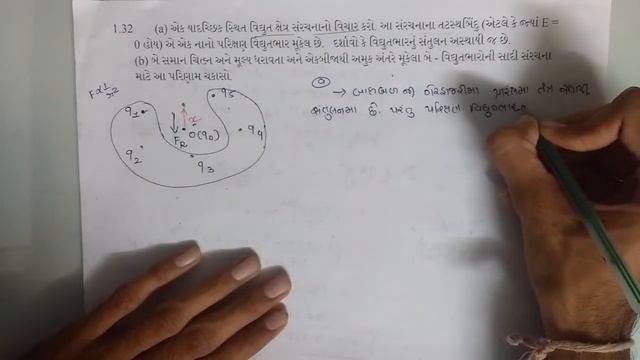 1.32 (a) એક યાદચ્છિક સ્થિત વિદ્યુત ક્ષેત્ર સંરચનાનો વિચાર કરો. આ સંરચનાના તટસ્થબિંદુ (એટલે કે જ્યાં E =
0 હોય) એ એક નાનો પરિક્ષણ વિદ્યુતભાર મૂકેલ છે. દર્શાવો કે વિદ્યુતભારનું સંતુલન અસ્થાયી જ છે.
(b) બે સમાન ચિહ્ન અને મૂલ્ય ધરાવતા અને એકબીજાથી અમુક અંતરે મૂકેલા બે - વિદ્યુતભારોની સાદી સંરચના
માટે આ પરિણામ ચકાસો.
F∝1/r²
q1
q2
q3
q4
q5
x
FR
O(q0)
a
→ બાહ્યબળ ની ગેરહાજરીમાં પ્રારંભમાં તંત્ર
સંતુલનમાં છે. પરંતુ પરિક્ષણ